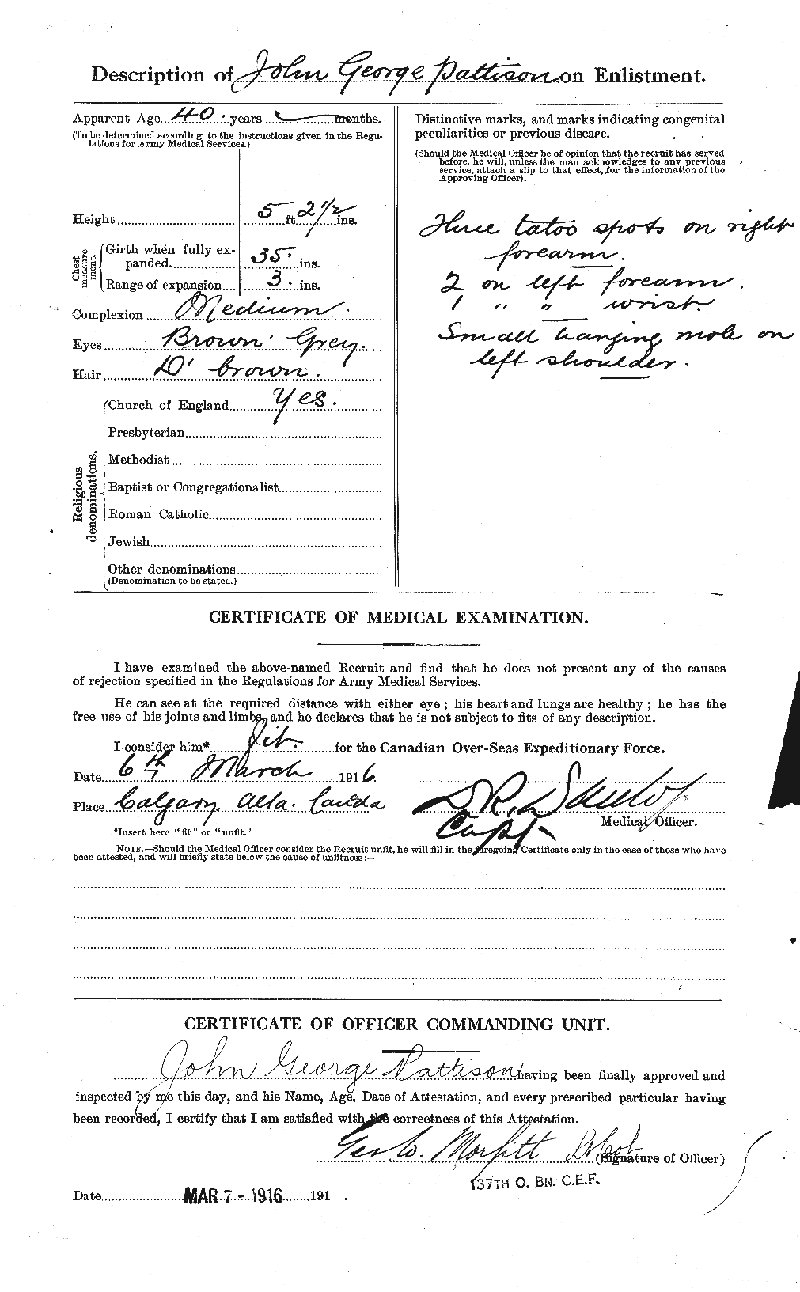 Description of John George Pattison on Enlistment.
Apparent Age 40 years months.
(To be determined according to the instructions given in the Regu-
lations for Army Medical Services.)
Height 5 ft. 2 1/2 ins.
Chest measurement.
Girth when fully ex-
panded 35 ins.
Range of expansion 3 ins.
Complexion Medium.
Eyes Brown Grey.
Hair D' brown.
Religious denominations.
Church of England Yes.
Presbyterian
Methodist
Baptist or Congregationalist
Roman Catholic
Jewish
Other denominations
(Denomination to be stated.)
Distinctive marks, and marks indicating congenital
peculiarities or previous disease.
(Should the Medical Officer be of opinion that the recruit has served
before, he will, unless the man acknowledges to any previous
service, attach a slip to that effect, for the information of the
Approving Officer).
Three tatoo spots on right
forearm.
2 on left forearm.
1 " " wrist.
Small hanging mole on
left shoulder.
CERTIFICATE OF MEDICAL EXAMINATION.
I have examined the above-named Recruit and find that he does not present any of the causes
of rejection specified in the Regulations for Army Medical Services.
He can see at the required distance with either eye; his heart and lungs are healthy; he has the
free use of his joints and limbs, and he declares that he is not subject to fits of any description.
I consider him* fit for the Canadian Over-Seas Expeditionary Force.
Date 6th March 1916.
Place Calgary Alta. Canda
Capt
Medical Officer.
*Insert here "fit" or "unfit."
NOTE.—Should the Medical Officer consider the Recruit unfit, he will fill in the foregoing Certificate only in the case of those who have
been attested, and will briefly state below the cause of unfitness:—
CERTIFICATE OF OFFICER COMMANDING UNIT.
John George Pattison having been finally approved and
inspected by me this day, and his Name, Age, Date of Attestation, and every prescribed particular having
been recorded, I certify that I am satisfied with the correctness of this Attestation.
Geo W. Morfitt (Signature of Officer)
137TH O. BN. C.E.F.
Date MAR 7 - 1916 191 .